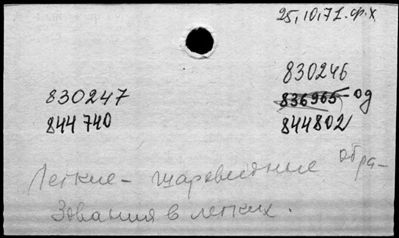 25,10,71.ф.х
830246
830247 836965-од
844740 844802
Легкие- шаровидные обра-
зования в легких.